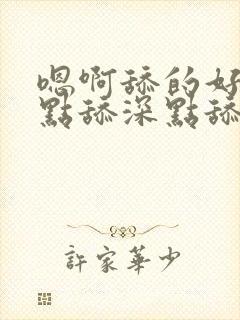 嗯啊舔的好
點舔深點舔
許家華少